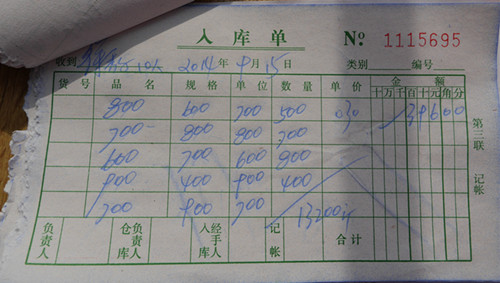 入库单 № 1115695
收到 2014年9月15日 类别 编号
货号 品名 规格 单位 数量 单价 金额
十万千百十元角分
800 600 700 500 030 39600
700 800 800 700
600 700 600 800
900 400 900 400
700 900 700 13200
负责人 仓库负责人 入库经手人 记帐 合计
第三联 记帐